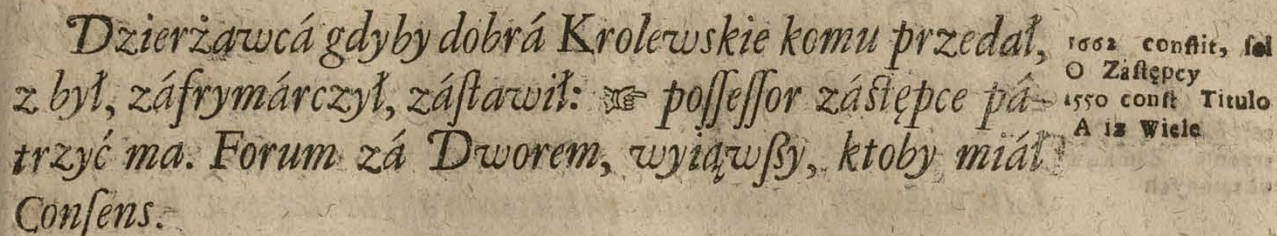 Dzierżawcá gdyby dobrá Krolewskie komu przedał,
z był, záfrymárczył, záſtawił: ☞ poſſeſſor záſtępce pá-
trzyć ma. Forum zá Dworem, wyiąwſzy, ktoby miáł
Conſens.
1662 conſtit, fol
O Záſtępcy
1550 conſt Titulo
A iż Wiele